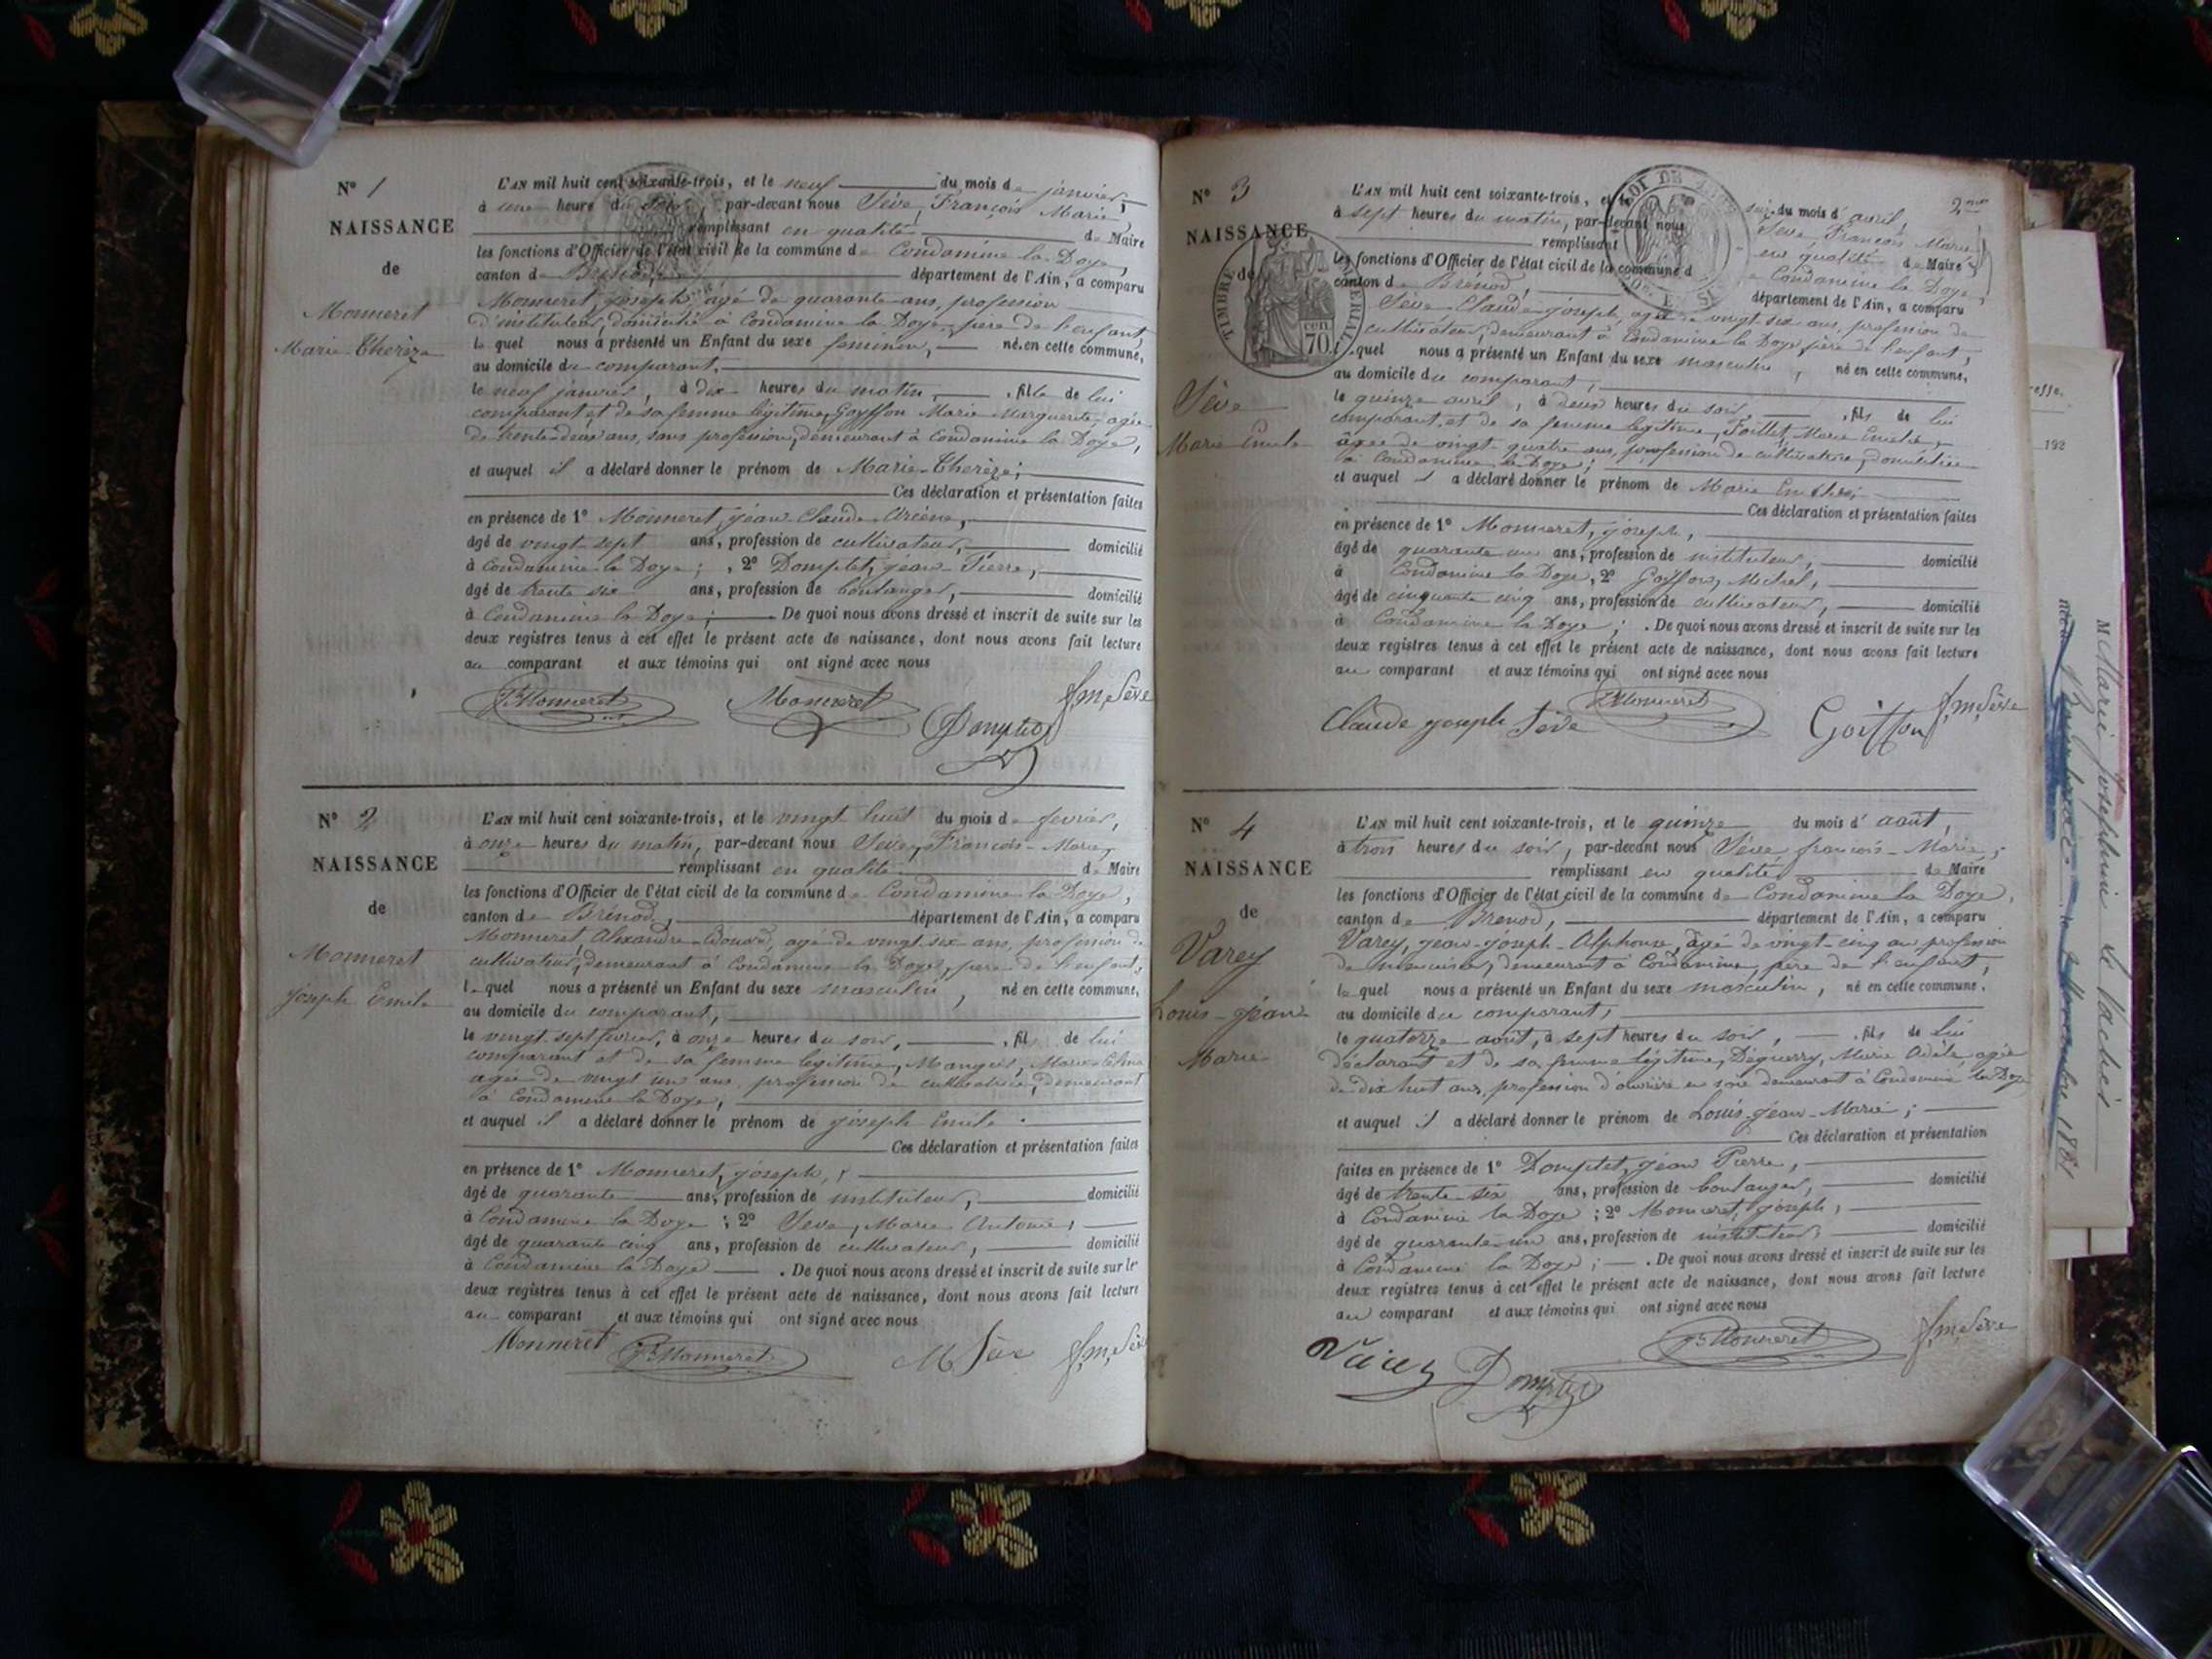 N° 1
NAISSANCE
de
Monneret
Marie-Therèze
L'AN mil huit cent soixante-trois, et le neuf du mois de janvier,
à une heure du soir, par-devant nous Sève, François Marie
remplissant en qualité de Maire
les fonctions d'Officier de l'état civil de la commune de Condamine la Doye,
canton de Brénod, département de l'Ain, a comparu
Monneret, joseph, agé de quarante ans, profession
d'instituteur, domicilié à Condamine la Doye, père de l'enfant,
lequel nous a présenté un Enfant du sexe feminin, né en cette commune,
au domicile du comparant,
le neuf janvier, à dix heures du matin, fille de lui
comparant, et de sa femme légitime, Goyffon Marie Marguerite, agée
de trente deux ans, sans profession, demeurant à Condamine la Doye,
et auquel il a déclaré donner le prénom de Marie-Therèze;
Ces déclaration et présentation faites
en présence de 1° Monneret, jean-Claude-Arsène,
âgé de vingt-sept ans, profession de cultivateur, domicilié
à Condamine la Doye; , 2° Domptet, jean-Pierre,
âgé de trente six ans, profession de boulanger, domicilié
à Condamine la Doye; De quoi nous avons dressé et inscrit de suite sur les
deux registres tenus à cet effet le présent acte de naissance, dont nous avons fait lecture
au comparant et aux témoins qui ont signé avec nous
Jh Monneret Monneret Domptet f. m. Sève
N° 2
NAISSANCE
de
Monneret
joseph Emile
L'AN mil huit cent soixante-trois, et le vingt huit du mois de fevrier,
à onze heures du matin, par-devant nous Sève, François-Marie,
remplissant en qualité de Maire
les fonctions d'Officier de l'état civil de la commune de Condamine la Doye,
canton de Brénod, département de l'Ain, a comparu
Monneret, Alexandre-Edouard, agé de vingt six ans, profession de
cultivateur, demeurant à Condamine la Doye, père de l'enfant,
lequel nous a présenté un Enfant du sexe masculin, né en cette commune,
au domicile du comparant,
le vingt sept fevrier, à onze heures du soir, , fils de lui
comparant et de sa femme légitime, Marie
agée de vingt un ans, profession de cultivatrice, demeurant
à Condamine la Doye,
et auquel il a déclaré donner le prénom de joseph Emile
Ces déclaration et présentation faites
en présence de 1° Monneret, joseph,
âgé de quarante ans, profession de instituteur, domicilié
à Condamine la Doye; 2° Sève, Marie Antoine,
âgé de quarante cinq ans, profession de cultivateur, domicilié
à Condamine la Doye . De quoi nous avons dressé et inscrit de suite sur les
deux registres tenus à cet effet le présent acte de naissance, dont nous avons fait lecture
au comparant et aux témoins qui ont signé avec nous
Monneret Jh Monneret M Sève f. m. Sève
N° 3
NAISSANCE
de
TIMBRE IMPERIAL
70 cen
Sève
Marie Emile
L'AN mil huit cent soixante-trois, et le du mois d'avril,
à sept heures du matin, par-devant nous Sève, François Marie
remplissant en qualité de Maire
les fonctions d'Officier de l'état civil de la commune de Condamine la Doye,
canton de Brénod, département de l'Ain, a comparu
Sève, Claude-joseph, agé de vingt-six ans, profession de
cultivateur, demeurant à Condamine la Doye, père de l'enfant,
lequel nous a présenté un Enfant du sexe masculin, né en cette commune,
au domicile du comparant,
le quinze avril, à deux heures du soir, , fils de lui
comparant, et de sa femme légitime, Marie
âgée de vingt-quatre ans, profession de cultivatrice, domiciliée
à Condamine la Doye;
et auquel il a déclaré donner le prénom de Marie Emile;
Ces déclaration et présentation faites
en présence de 1° Monneret, joseph,
âgé de quarante un ans, profession de instituteur, domicilié
à Condamine la Doye, 2° Goyffon, Michel,
âgé de cinquante cinq ans, profession de cultivateur, domicilié
à Condamine la Doye; . De quoi nous avons dressé et inscrit de suite sur les
deux registres tenus à cet effet le présent acte de naissance, dont nous avons fait lecture
au comparant et aux témoins qui ont signé avec nous
Claude joseph Sève Jh Monneret Goiffon f. m. Sève
N° 4
NAISSANCE
de
Varey
Louis-jean
Marie
L'AN mil huit cent soixante-trois, et le quinze du mois d'août,
à trois heures du soir, par-devant nous Sève françois-Marie,
remplissant en qualité de Maire
les fonctions d'Officier de l'état civil de la commune de Condamine la Doye,
canton de Brenod, département de l'Ain, a comparu
Varey, jean-joseph-Alphonse, âgé de vingt-cinq ans profession
de menuisier, demeurant à Condamine, père de l'enfant,
lequel nous a présenté un Enfant du sexe masculin, né en cette commune,
au domicile du comparant,
le quatorze août, à sept heures du soir, , fils de lui
déclarant et de sa femme légitime, Déguerry, Marie Adèle, agée
de dix huit ans, profession d'ouvrière en soie demeurant à Condamine la Doye
et auquel il a déclaré donner le prénom de Louis-jean-Marie;
Ces déclaration et présentation
faites en présence de 1° Domptet, jean Pierre,
âgé de trente-six ans, profession de boulanger, domicilié
à Condamine la Doye; 2° Monneret, joseph,
âgé de quarante-un ans, profession de instituteur domicilié
à Condamine la Doye; . De quoi nous avons dressé et inscrit de suite sur les
deux registres tenus à cet effet le présent acte de naissance, dont nous avons fait lecture
au comparant et aux témoins qui ont signé avec nous
Varey Domptet Jh Monneret f. m. Sève
192
M Marie Joséphine
1881